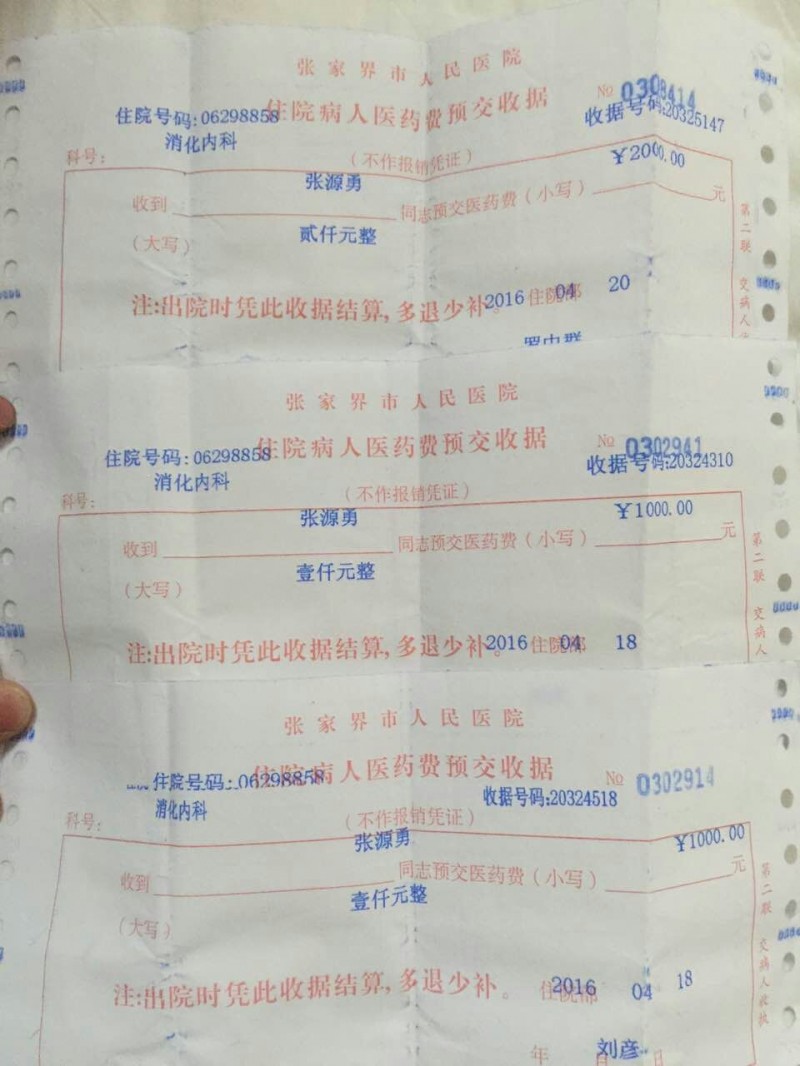 张家界市人民医院
住院病人医药费预交收据
№ 0308414
住院号码:06298858
收据号码:20325147
消化内科
科号:
(不作报销凭证)
¥2000.00
张源勇
收到 同志预交医药费(小写) 元
(大写) 贰仟元整
注:出院时凭此收据结算,多退少补。
2016 住院部 04 20
罗中群
第二联 交病人
张家界市人民医院
住院病人医药费预交收据
№ 0302941
住院号码:06298858
收据号码:20324310
消化内科
科号:
(不作报销凭证)
¥1000.00
张源勇
收到 同志预交医药费(小写) 元
(大写) 壹仟元整
注:出院时凭此收据结算,多退少补。
2016 住院部 04 18
第二联 交病人
张家界市人民医院
住院病人医药费预交收据
№ 0302914
住院号码:06298858
收据号码:20324518
消化内科
科号:
(不作报销凭证)
¥1000.00
张源勇
收到 同志预交医药费(小写) 元
(大写) 壹仟元整
注:出院时凭此收据结算,多退少补。
住院部 2016 04 18
年 月 日
刘彦
第二联 交病人收执